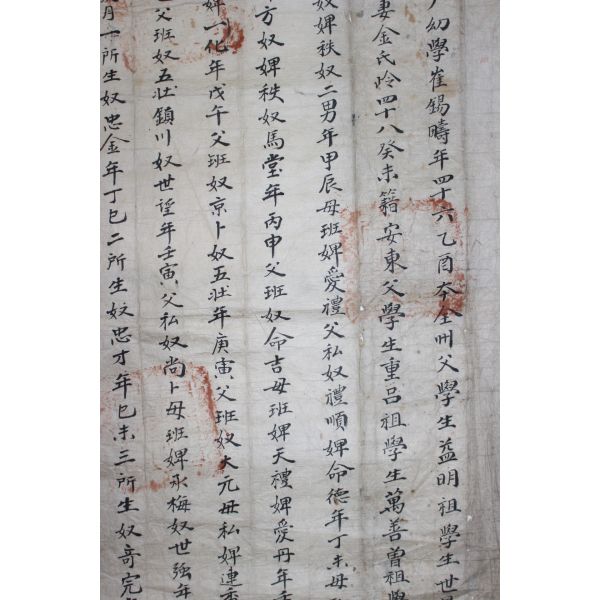 幼學崔錫疇年四十六乙酉本全州父學生益明祖學生世
妻金氏岭四十八癸未籍安東父學生重呂祖學生萬善曾祖學
奴婢秩奴二男年甲辰母班婢愛禮父私奴禮順婢命德年丁未母
方奴婢秩奴馬堂年丙申父班奴命吉母班婢天禮婢愛丹年
婢一化年戊午父班奴京卜奴五壯年庚寅父班奴大元母私婢連
父班奴五壯鎮川奴世望年壬寅父私奴尚卜母班婢永梅奴世強年
月一所生奴忠金年丁巳二所生奴忠才年己未三所生奴奇完